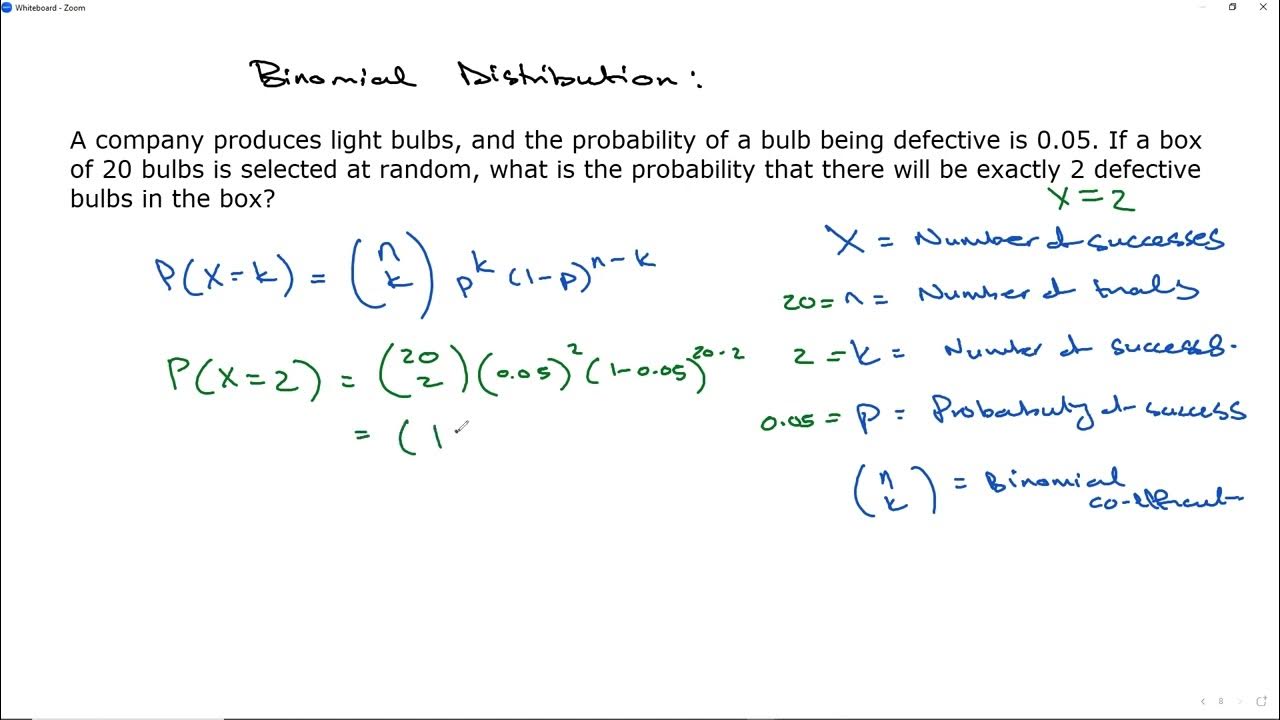 Whiteboard - Zoom
Binomial Distribution:
A company produces light bulbs, and the probability of a bulb being defective is 0.05. If a box
of 20 bulbs is selected at random, what is the probability that there will be exactly 2 defective
bulbs in the box?
X = 2
P(X=k) = (n k) p^k (1-p)^n-k
X = Number of successes
20 = n = Number of trials
P(X=2) = (20 2) (0.05)^2 (1-0.05)^20-2
2 = k = Number of success.
0.05 = p = Probability of success
= (1
(n k) = Binomial
co-efficient
8